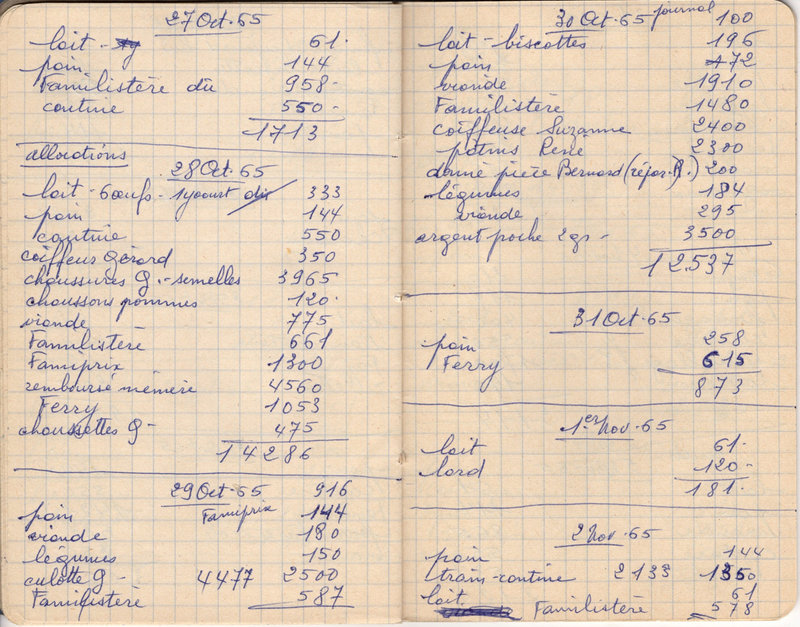 27 Oct. 65
lait - 61.
pain 144
Familistère dû 958-
cantine 550-
1713
allocations
28 Oct. 65
lait - 6 œufs - 1 yaourt dû 333
pain 144
cantine 550
coiffeur Gérard 350
chaussures G. - semelles 3965
chaussons pommes 120.
viande 775
Familistère 661
Famiprix 1300
rembourse mémère 4560
Ferry 1053
chaussettes G - 475
14286
29 Oct. 65
Famiprix 916
pain 144
viande 180
légumes 150
culotte G - 2500
Familistère 587
4477
30 Oct. 65 journal 100
lait - biscottes 196
pain 72
viande 1910
Familistère 1480
coiffeuse Suzanne 2400
patins René 2300
donné pièce Bernard (répar. R.) 200
légumes 184
viande 295
argent poche 2 gs - 3500
12.537
31 Oct. 65
pain 258
Ferry 615
873
1er Nov. 65
lait 61.
lard 120-
181.
2 Nov. 65
pain 144
train - cantine 1350
lait 61
Familistère 578
2133